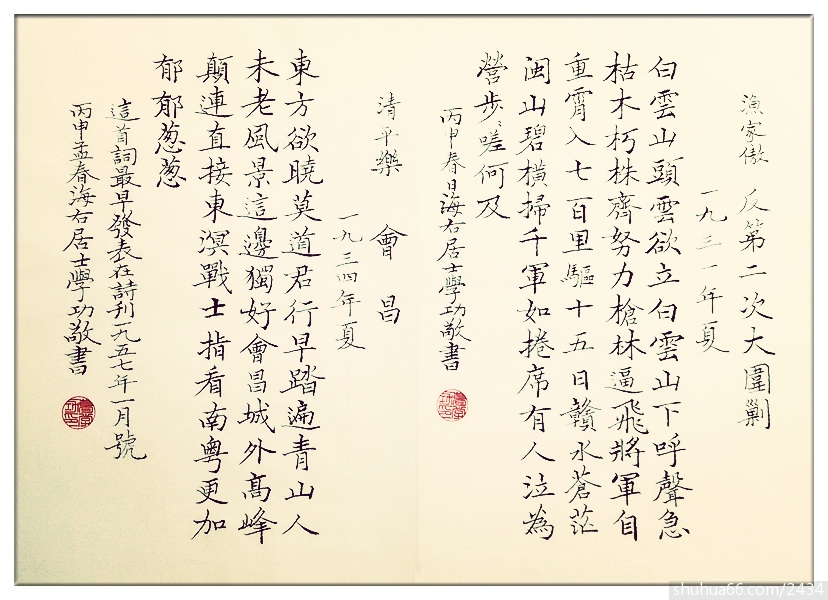 漁家傲 反第二次大圍剿
一九三一年夏
白雲山頭雲欲立白雲山下呼聲急
枯木朽株齊努力槍林逼飛將軍自
重霄入七百里驅十五日贛水蒼茫
閩山碧橫掃千軍如捲席有人泣為
營步步嗟何及
丙申春日海右居士學功敬書
清平樂 會昌
一九三四年夏
東方欲曉莫道君行早踏遍青山人
未老風景這邊獨好會昌城外高峰
顛連直接東溟戰士指看南粵更加
郁郁葱葱
這首詞最早發表在詩刊一九五七年一月號
丙申孟春海右居士學功敬書
shuhua66.com/2434